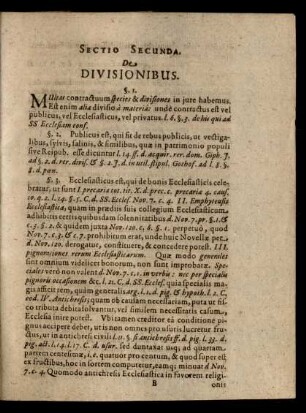 SECTIO SECUNDA.
De
DIVISIONIBUS.
§. 1.
MUltas contractuum species & divisiones in jure habemus.
Est enim alia divisio à materiâ: undè contractus est vel
publicus, vel Ecclesiasticus, vel privatus. l. 6. §. 5. de his qui ad
SS. Ecclesiam conf.
§. 2. Publicus est, qui fit de rebus publicis, ut vectiga-
libus, sylvis, salinis, & similibus, quæ in patrimonio populi
sive Reipub. esse dicuntur l. 14. ff. d. acquir. rer. dom. Giph. J.
ad §. 2. d. rer. divis. & §. 2. J. d. inutil. stipul. Gothof. ad l. §. §.
8. d. pan.
§. 3. Ecclesiasticus est, qui de bonis Ecclesiasticis cele-
bratur, ut sunt I. precaria tot. tit. X. d. prec. c. precaria 4. caus.
10. q. 2. l. 14. §. 5. C. d. SS. Eccles. Nov. 7. c. 4. II. Emphyteusis
Ecclesiastica, quam in prædiis suis collegium Ecclesiasticum,
adhibitis certis quibusdam solennitatibus d. Nov. 7. pr. §. 1. &
c. 3. §. 2. & quidem juxta Nov. 120. c. 8. §. 6. perpetuò, quod
Nov. 7. c. 3. & 7. prohibitum erat, unde huic Novellæ per
d. Nov. 120. derogatur, constituere, & concedere potest. III.
pignorationes rerum Ecclesiasticarum. Quæ modo generales
sint omnium videlicet bonorum, non sunt improbatæ. Spe-
ciales verò non valent d. Nov. 7. c. 1. in verbis: nec per specialis
pignoris occasionem &c. l. 21. C. d. SS. Eccles. quia specialis ma-
gis afficit rem, quàm generalis arg. l. 2. d. pig. & hypoth. l. 2. C.
eod. IV. Antichreseos; quàm ob causam necessariam, puta ut fisco
tributa debita solvantur, vel similem necessitatis casum,
Ecclesia inire potest. Vbi tamen creditor tâ conditione pi-
gnus accipere debet, ut is non omnes pro usuris lucretur fru-
ctus, ut in aliis antichresibus fieri l. 11. §. si antichresis ff. d. pig. l. 33. d.
pig. act. l. 14. l. 17. C. d. usur. sed duntaxat usq; ad quartam
partem centesimæ, i.e. quatuor pro centum, & quod super est
ex fructibus, hoc in sortem computetur, eamq; minuat d Nov.
7. c. 4. Quomodo antichresis Ecclesiastica in favorem religi-
B onis